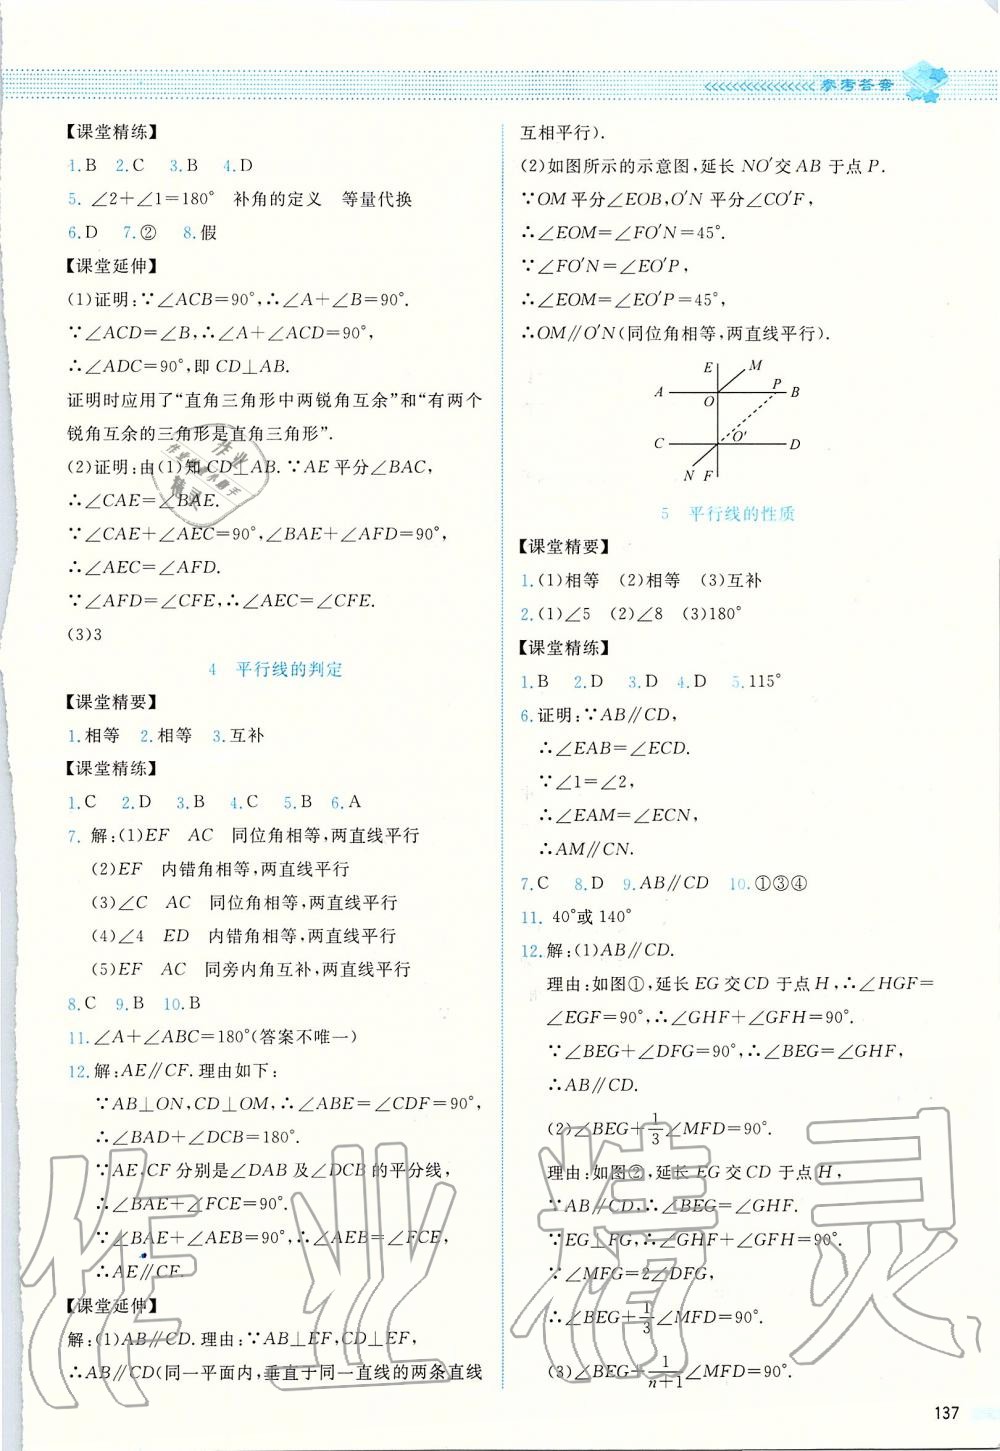 参考答案
【课堂精练】
1.B 2.C 3.B 4.D
5.∠2+∠1=180° 补角的定义 等量代换
6.D 7.② 8.假
【课堂延伸】
(1)证明:∵∠ACB=90°,∴∠A+∠B=90°.
∵∠ACD=∠B,∴∠A+∠ACD=90°,
∴∠ADC=90°,即CD⊥AB.
证明时应用了“直角三角形中两锐角互余”和“有两个
锐角互余的三角形是直角三角形”.
(2)证明:由(1)知CD⊥AB.∵AE平分∠BAC,
∴∠CAE=∠BAE.
∵∠CAE+∠AEC=90°,∠BAE+∠AFD=90°,
∴∠AEC=∠AFD.
∵∠AFD=∠CFE,∴∠AEC=∠CFE.
(3)3
4 平行线的判定
【课堂精要】
1.相等 2.相等 3.互补
【课堂精练】
1.C 2.D 3.B 4.C 5.B 6.A
7. 解:(1)EF AC 同位角相等,两直线平行
(2)EF 内错角相等,两直线平行
(3)∠C AC 同位角相等,两直线平行
(4)∠4 ED 内错角相等,两直线平行
(5)EF AC 同旁内角互补,两直线平行
8.C 9.B 10.B
11.∠A+∠ABC=180°(答案不唯一)
12.解:AE∥CF.理由如下:
∵AB⊥ON,CD⊥OM,∴∠ABE=∠CDF=90°,
∴∠BAD+∠DCB=180°.
∵AE,CF分别是∠DAB及∠DCB的平分线,
∴∠BAE+∠FCE=90°.
∵∠BAE+∠AEB=90°,∴∠AEB=∠FCE,
∴AE∥CF.
【课堂延伸】
解:(1)AB∥CD.理由:∵AB⊥EF,CD⊥EF,
∴AB∥CD(同一平面内,垂直于同一直线的两条直线
互相平行).
(2)如图所示的示意图,延长NO′交AB于点P.
∵OM平分∠EOB,O′N平分∠CO′F,
∴∠EOM=∠FO′N=45°.
∵∠FO′N=∠EO′P,
∴∠EOM=∠EO′P=45°,
∴OM∥O′N(同位角相等,两直线平行).
E M
A O P B
C O′ D
N F
5 平行线的性质
【课堂精要】
1.(1)相等 (2)相等 (3)互补
2.(1)∠5 (2)∠8 (3)180°
【课堂精练】
1.B 2.D 3.D 4.D 5.115°
6.证明:∵AB∥CD,
∴∠EAB=∠ECD.
∵∠1=∠2,
∴∠EAM=∠ECN,
∴AM∥CN.
7.C 8.D 9.AB∥CD 10.①③④
11. 40°或140°
12.解:(1)AB∥CD.
理由:如图①,延长EG交CD于点H,∴∠HGF=
∠EGF=90°,∴∠GHF+∠GFH=90°.
∵∠BEG+∠DFG=90°,∴∠BEG=∠GHF,
∴AB∥CD.
(2)∠BEG+1/3∠MFD=90°.
理由:如图②,延长EG交CD于点H,
∵AB∥CD,∴∠BEG=∠GHF.
∵EG⊥FG,∴∠GHF+∠GFH=90°.
∵∠MFG=2∠DFG,
∴∠BEG+1/3∠MFD=90°.
(3)∠BEG+1/(n+1)∠MFD=90°.
137
作业精灵